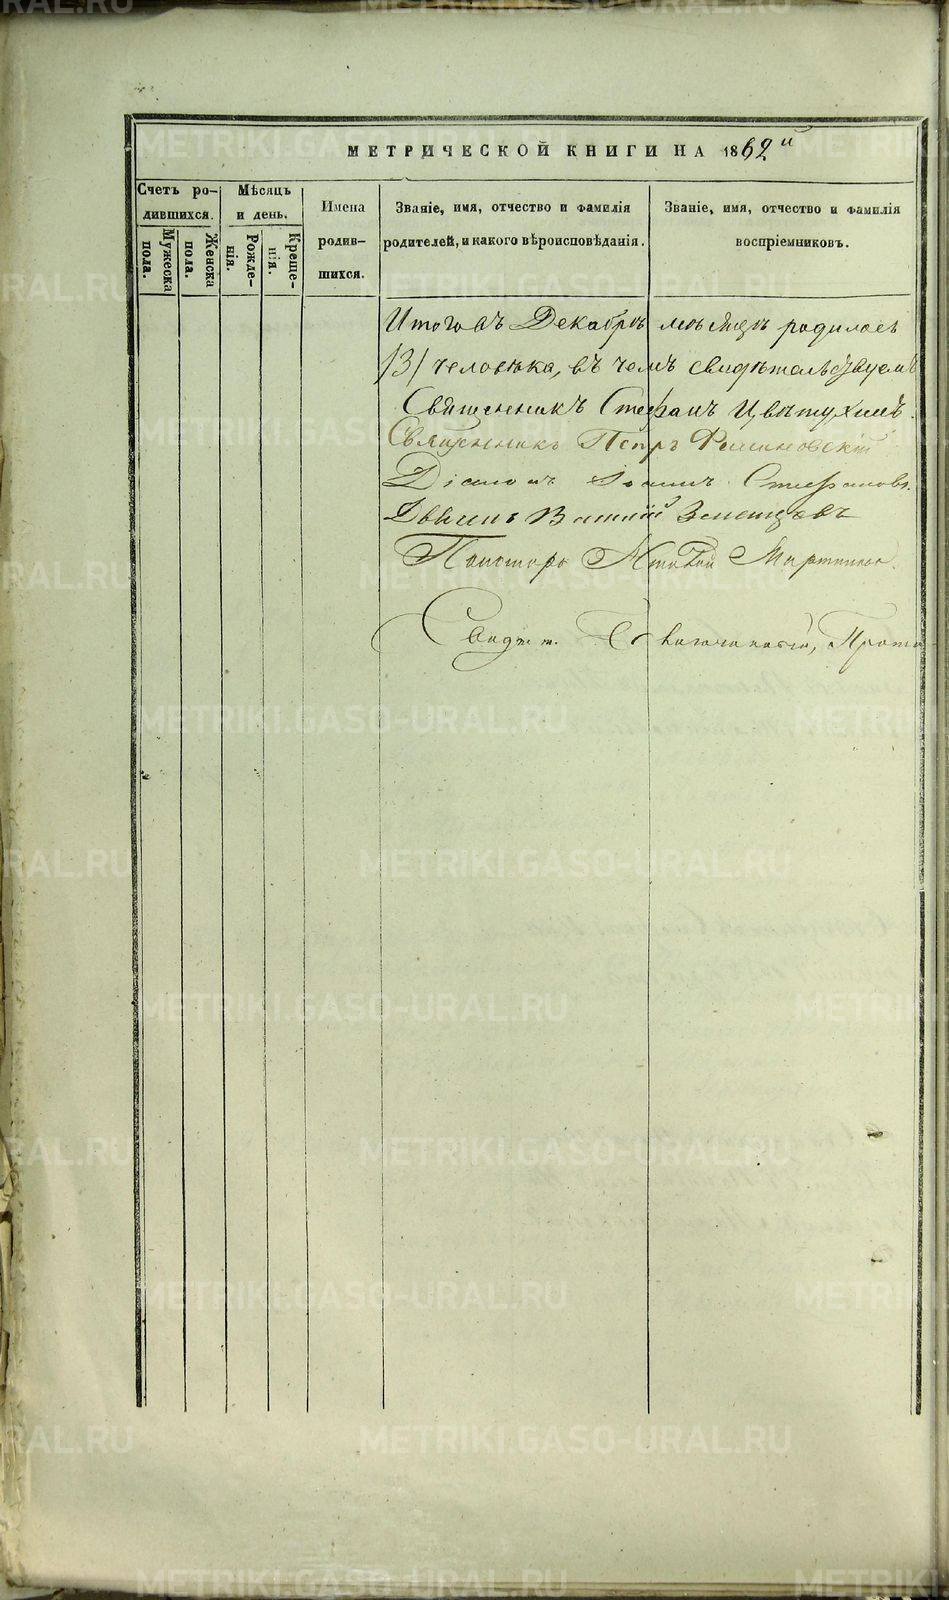 МЕТРИЧЕСКОЙ КНИГИ НА 1862й
Счетъ ро-
дившихся.
Мужеска
пола.
Женска
пола.
Мѣсяцъ
и день.
Рожде-
нія.
Креще-
нія.
Имена
родив-
шихся.
Званіе, имя, отчество и фамилія
родителей, и какого вѣроисповѣданія.
Званіе, имя, отчество и фамилія
воспріемниковъ.
Итого въ Декабрѣ мѣсяцѣ родилось
/3/ человѣка, въ чемъ свидѣтельствуемъ
Священникъ Стефанъ Цвѣтухинъ.
Священникъ Петръ
Діаконъ Іоаннъ Стефановъ
Дьячекъ Василій
Пономарь
METRIKI.GASO-URAL.RU